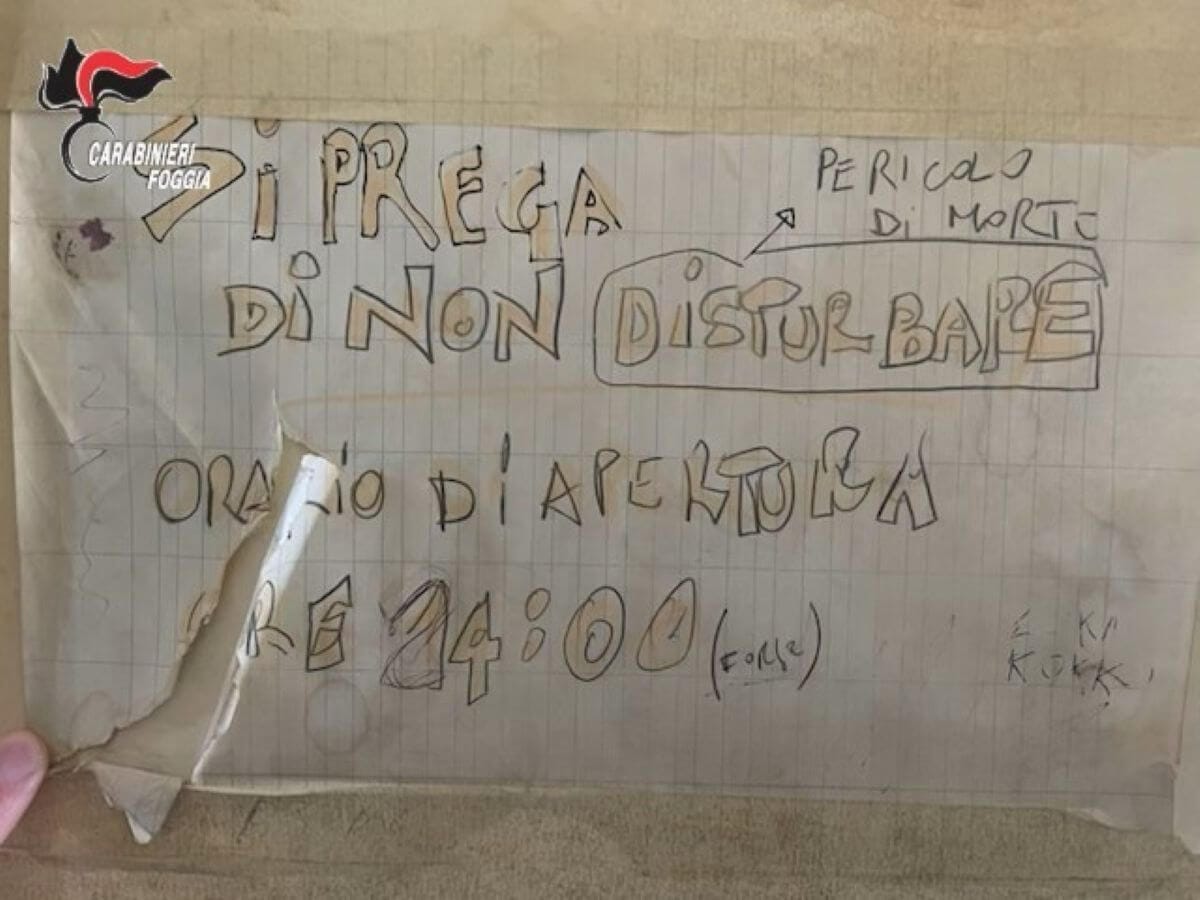 CARABINIERI
FOGGIA
Si PREGA
Di NON DiSTURBARE
PERICOLO
Di MORTE
ORARiO Di APERTURA
ORE 24:00 (FORSE)